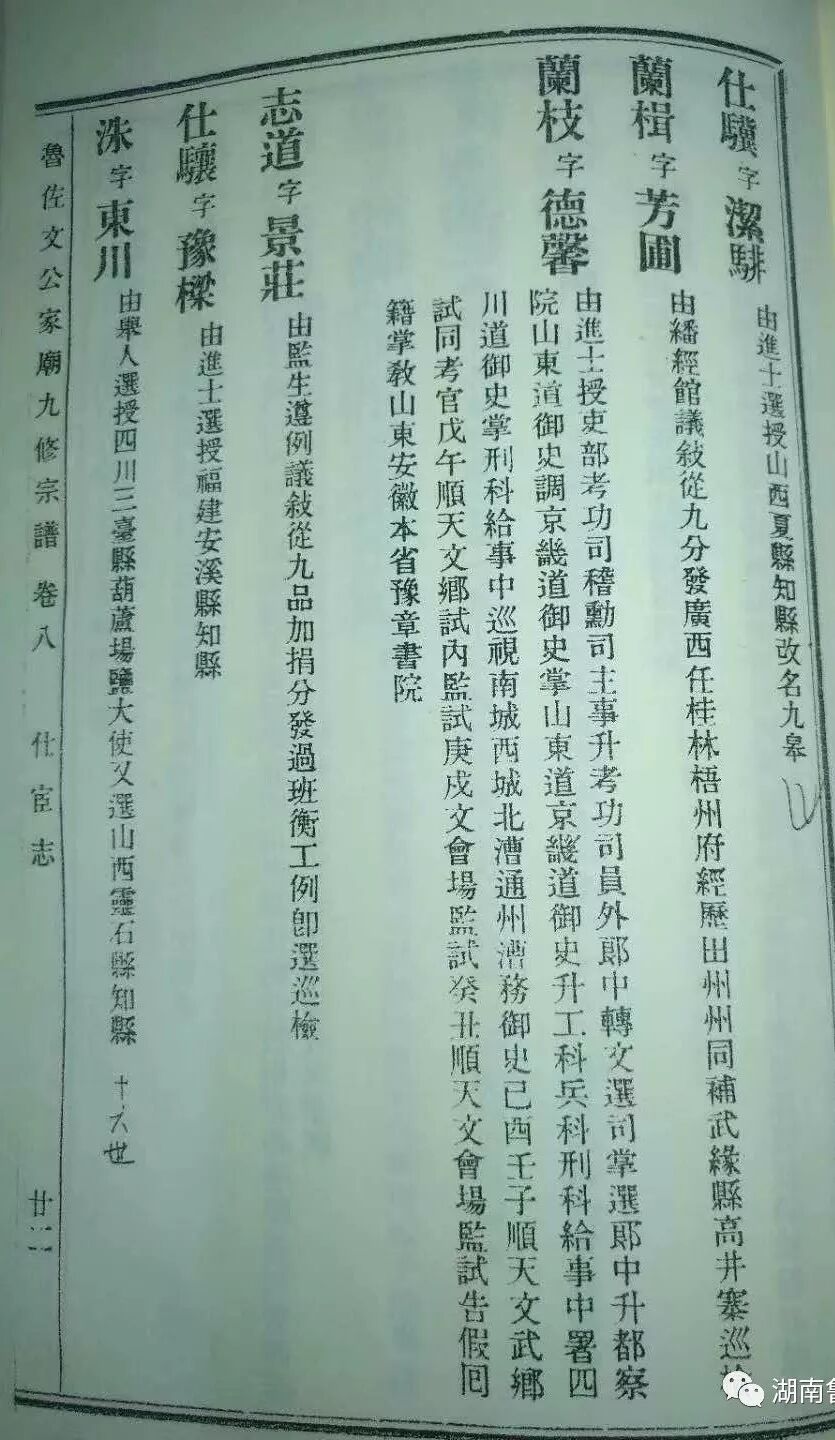 仕驥字潔騑由進士選授山西夏縣知縣改名九皋
蘭楫字芳圃由繙經館議敍從九分發廣西任桂林梧州府經歷出州州同補武緣縣高井寨巡檢
蘭枝字德馨由進士授吏部考功司稽勳司主事升考功司員外郞中轉文選司掌選郞中升都察
院山東道御史調京畿道御史掌山東道京畿道御史升工科兵科刑科給事中署四
川道御史掌刑科給事中巡視南城西城北漕通州漕務御史已酉壬子順天文武鄉
試同考官戊午順天文鄉試內監試庚戍文會場監試癸丑順天文會場監試告假囘
籍掌敎山東安徽本省豫章書院
志道字景莊由監生遵例議敍從九品加捐分發過班衡工例卽選巡檢
仕驤字豫樑由進士選授福建安溪縣知縣
洙字東川由舉人選授四川三臺縣葫蘆場鹽大使又選山西靈石縣知縣 十六世
魯佐文公家廟九修宗譜 卷八 仕宦志 廿二
湖南魯